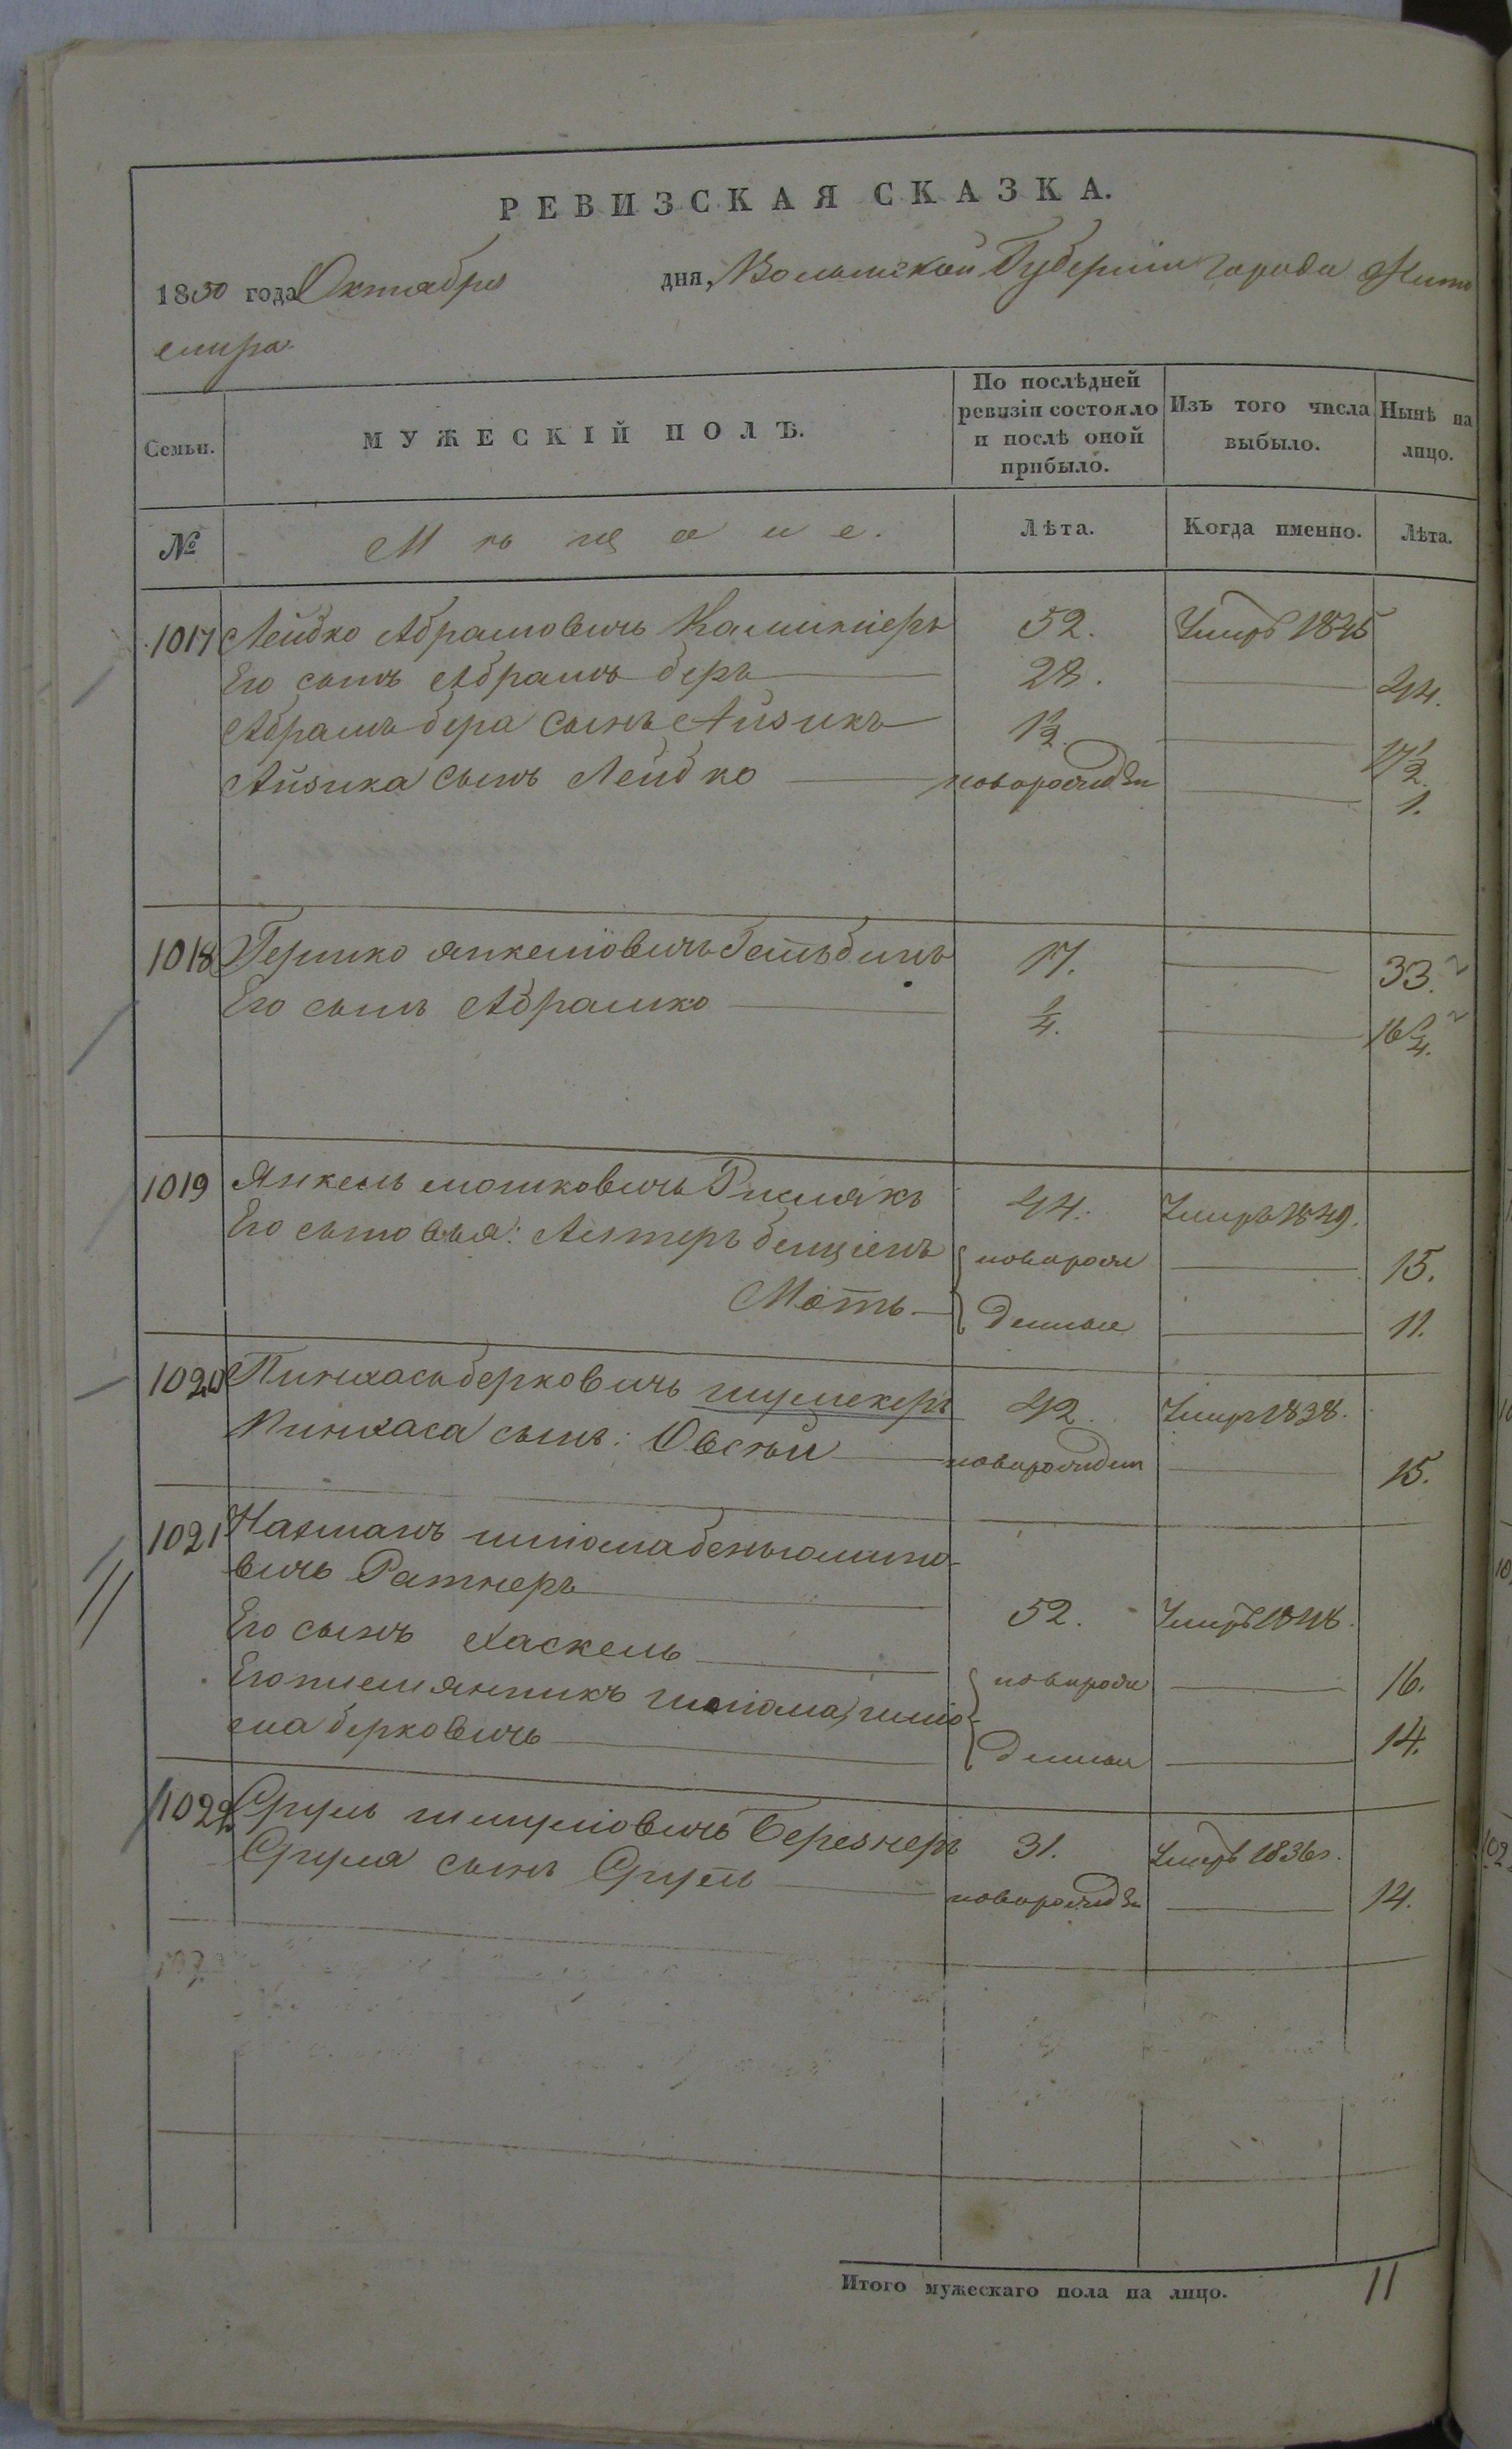 РЕВИЗСКАЯ СКАЗКА.
1850 года Октября дня, Волынской Губернии города Жито
мира
Семьи. МУЖЕСКІЙ ПОЛЪ. По послѣдней ревизіи состояло и послѣ оной прибыло. Изъ того числа выбыло. Нынѣ на лицо.
№ Мѣщане. Лѣта. Когда именно. Лѣта.
1017 Лейбко Абрамовичъ 52. Умеръ 1845
Его сынъ Абрамъ беръ 28. 44.
Абрамъ бера сынъ Айзикъ 1½. 17½.
Айзика сынъ Лейбко новорожден 1.
1018 Гершко Янкелiовичъ 17. 33.
Его сынъ Абрамко ¼. 16¼.
1019 Янкель мошковичъ 44. Умеръ 1849.
Его сыновья: Алтеръ бенціонъ новорож 15.
Моть денные 11.
1020 Пинхасъ берковичъ шумекеръ 42. Умеръ 1838.
Пинхаса сынъ: Овсѣй новорожден 15.
1021 Нахманъ шліома беньюмино-
вичъ Ратнеръ 52. Умеръ 1848.
Его сынъ Хаскель новорож 16.
Его племянникъ шліома, шлiо-
ма берковичъ денные 14.
1022 Сруль шмулiовичъ Березнеръ 31. Умеръ 1836г.
Сруля сынъ Сруль новорожден 14.
Итого мужескаго пола на лицо. 11